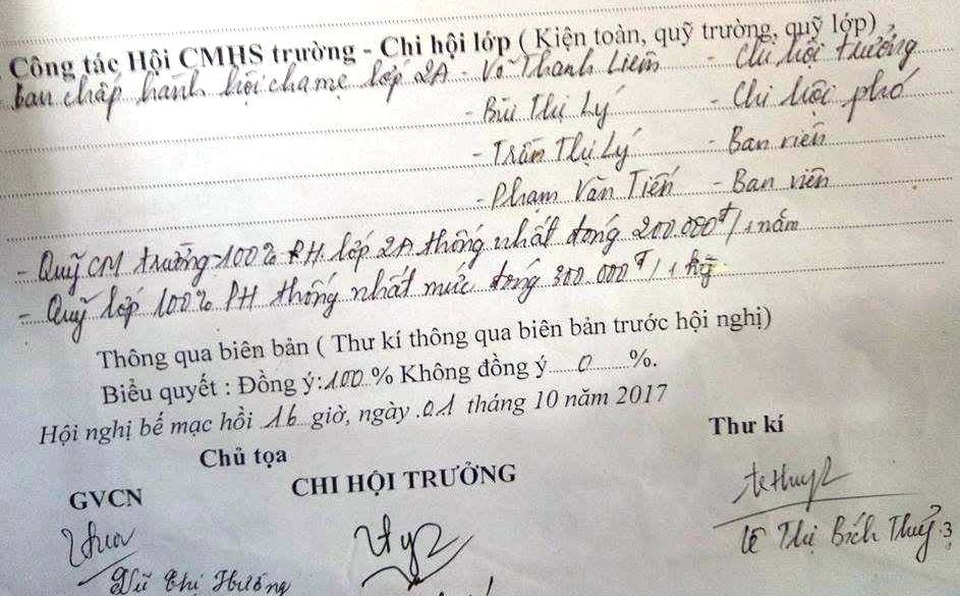 Công tác Hội CMHS trường - Chi hội lớp ( Kiện toàn, quỹ trường, quỹ lớp)
Ban chấp hành hội cha mẹ lớp 2A - Võ Thanh Liêm - Chi hội trưởng
- Bùi Thị Lý - Chi hội phó
- Trần Thị Lý - Ban viên
- Phạm Văn Tiến - Ban viên
- Quỹ CM trường - 100% PH lớp 2A thống nhất đóng 200.000đ/1 năm
- Quỹ lớp 100% PH thống nhất mức đóng 300.000đ/1 kỳ
Thông qua biên bản ( Thư kí thông qua biên bản trước hội nghị)
Biểu quyết : Đồng ý: 100 % Không đồng ý 0 %.
Hội nghị bế mạc hồi 16 giờ, ngày 01 tháng 10 năm 2017
Chủ tọa Thư kí
GVCN CHI HỘI TRƯỞNG
Thị Hương Lê Thị Bích Thuỷ
3